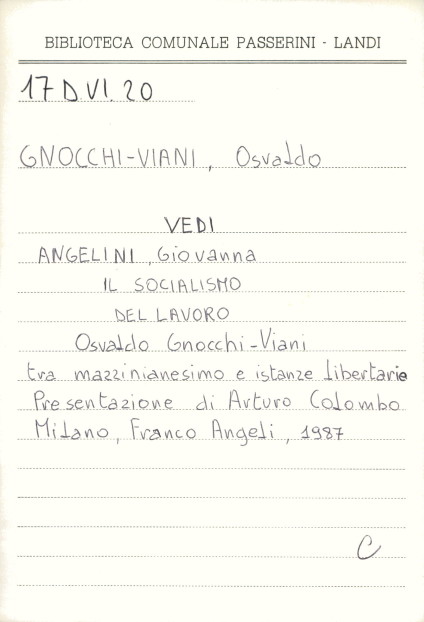 BIBLIOTECA COMUNALE PASSERINI - LANDI
17 D. VI. 20
GNOCCHI-VIANI, Osvaldo
VEDI
ANGELINI, Giovanna
IL SOCIALISMO
DEL LAVORO
Osvaldo Gnocchi-Viani
tra mazzinianesimo e istanze libertarie
Presentazione di Arturo Colombo
Milano, Franco Angeli, 1987
C